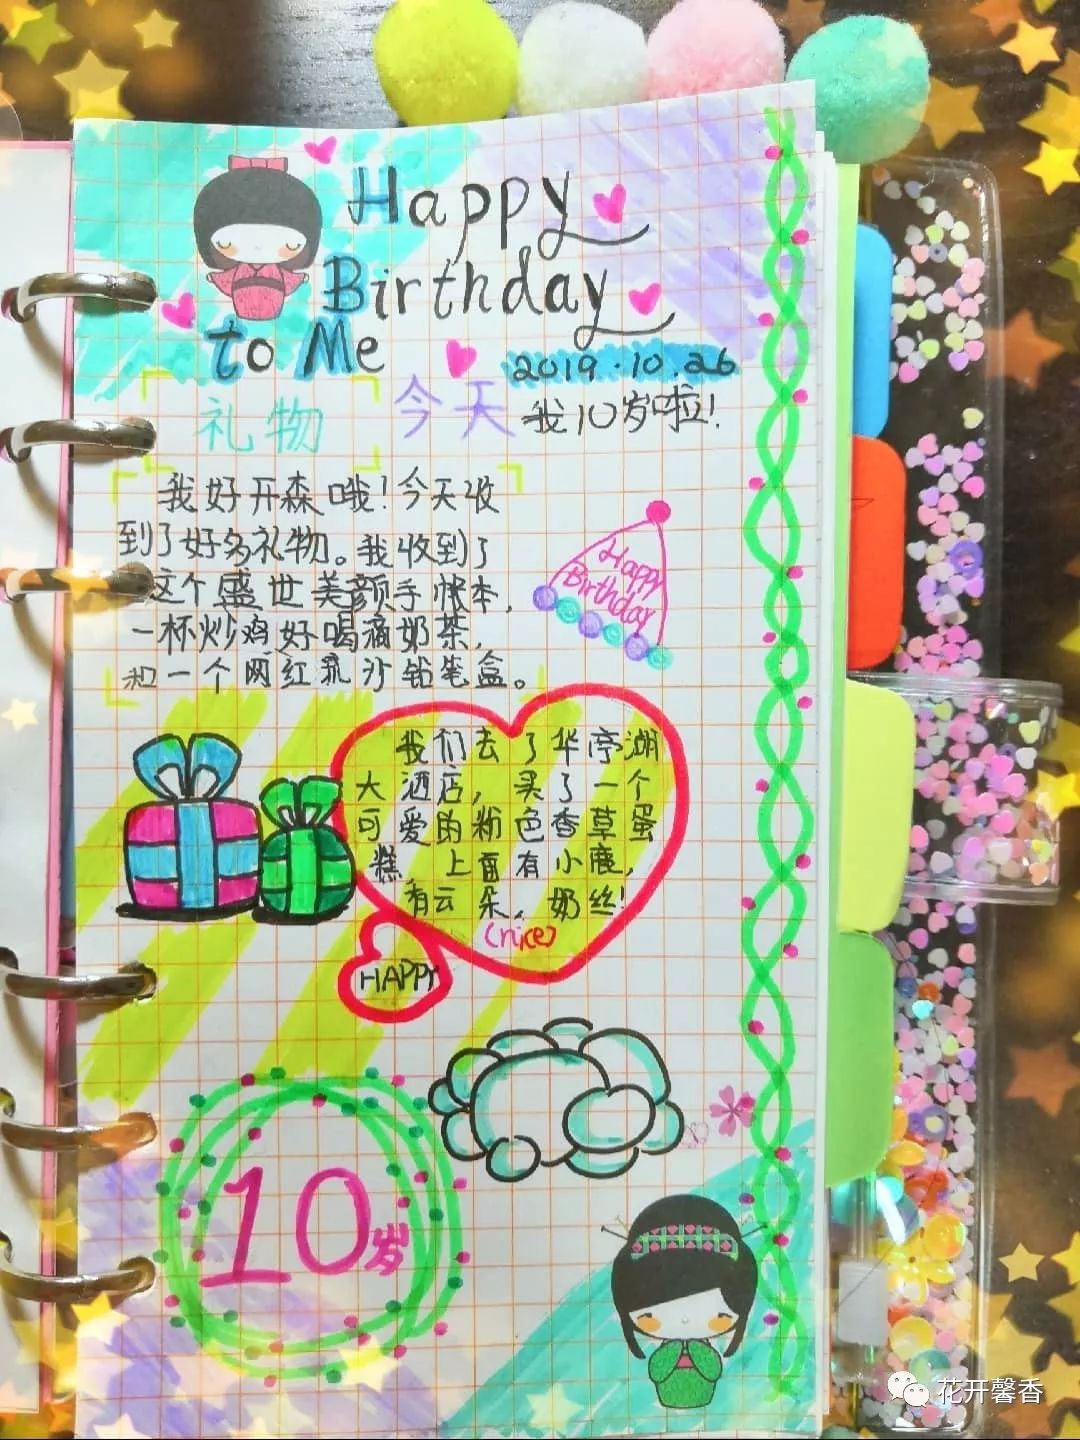 Happy
Birthday
to Me
2019.10.26
礼物
今天
我10岁啦!
我好开森哦!今天收
到了好多礼物。我收到了
这个盛世美颜手帐本,
一杯炒鸡好喝滴奶茶,
和一个网红流沙铅笔盒。
Happy
Birthday
我们去了华亭湖
大酒店,买了一个
可爱的粉色香草蛋
糕,上面有小鹿,
有云朵,奶丝!
(nice)
HAPPY
10岁
花开馨香